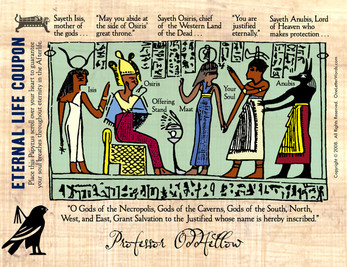 Sayeth Isis,
mother of
the gods . . .
"May you abide at
the side of Osiris'
great throne."
Sayeth Osiris, chief
of the Western Land
of the Dead . . .
"You are
justified
eternally."
Sayeth Anubis, Lord
of Heaven who
makes protection . . .
ETERNAL LIFE COUPON
Place this Papyrus scroll over your heart to guarantee
your soul breathes throughout eternity in the Afterlife.
Isis
Osiris
Offering
Stand
Maat
Your
Soul
Anubis
Copyright © 2008. All Rights Reserved.
"O Gods of the Necropolis, Gods of the Caverns, Gods of the South, North,
West, and East, Grant Salvation to the Justified whose name is hereby inscribed."
Professor Oddfellow